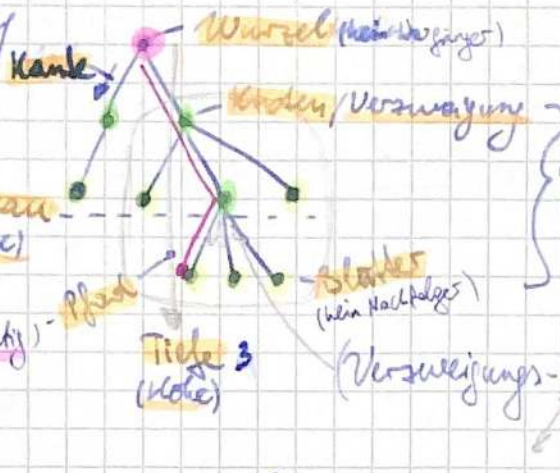 Wurzel (kein Vorgänger)
Kante
Knoten/Verzweigung
au
Blätter
(kein Nachfolger)
Pfad
tig)
Tiefe 3
(Höhe)
(Verzweigungs-